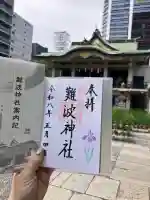 奉拝
難波神社
令和八年五月四日
難波神社案内記